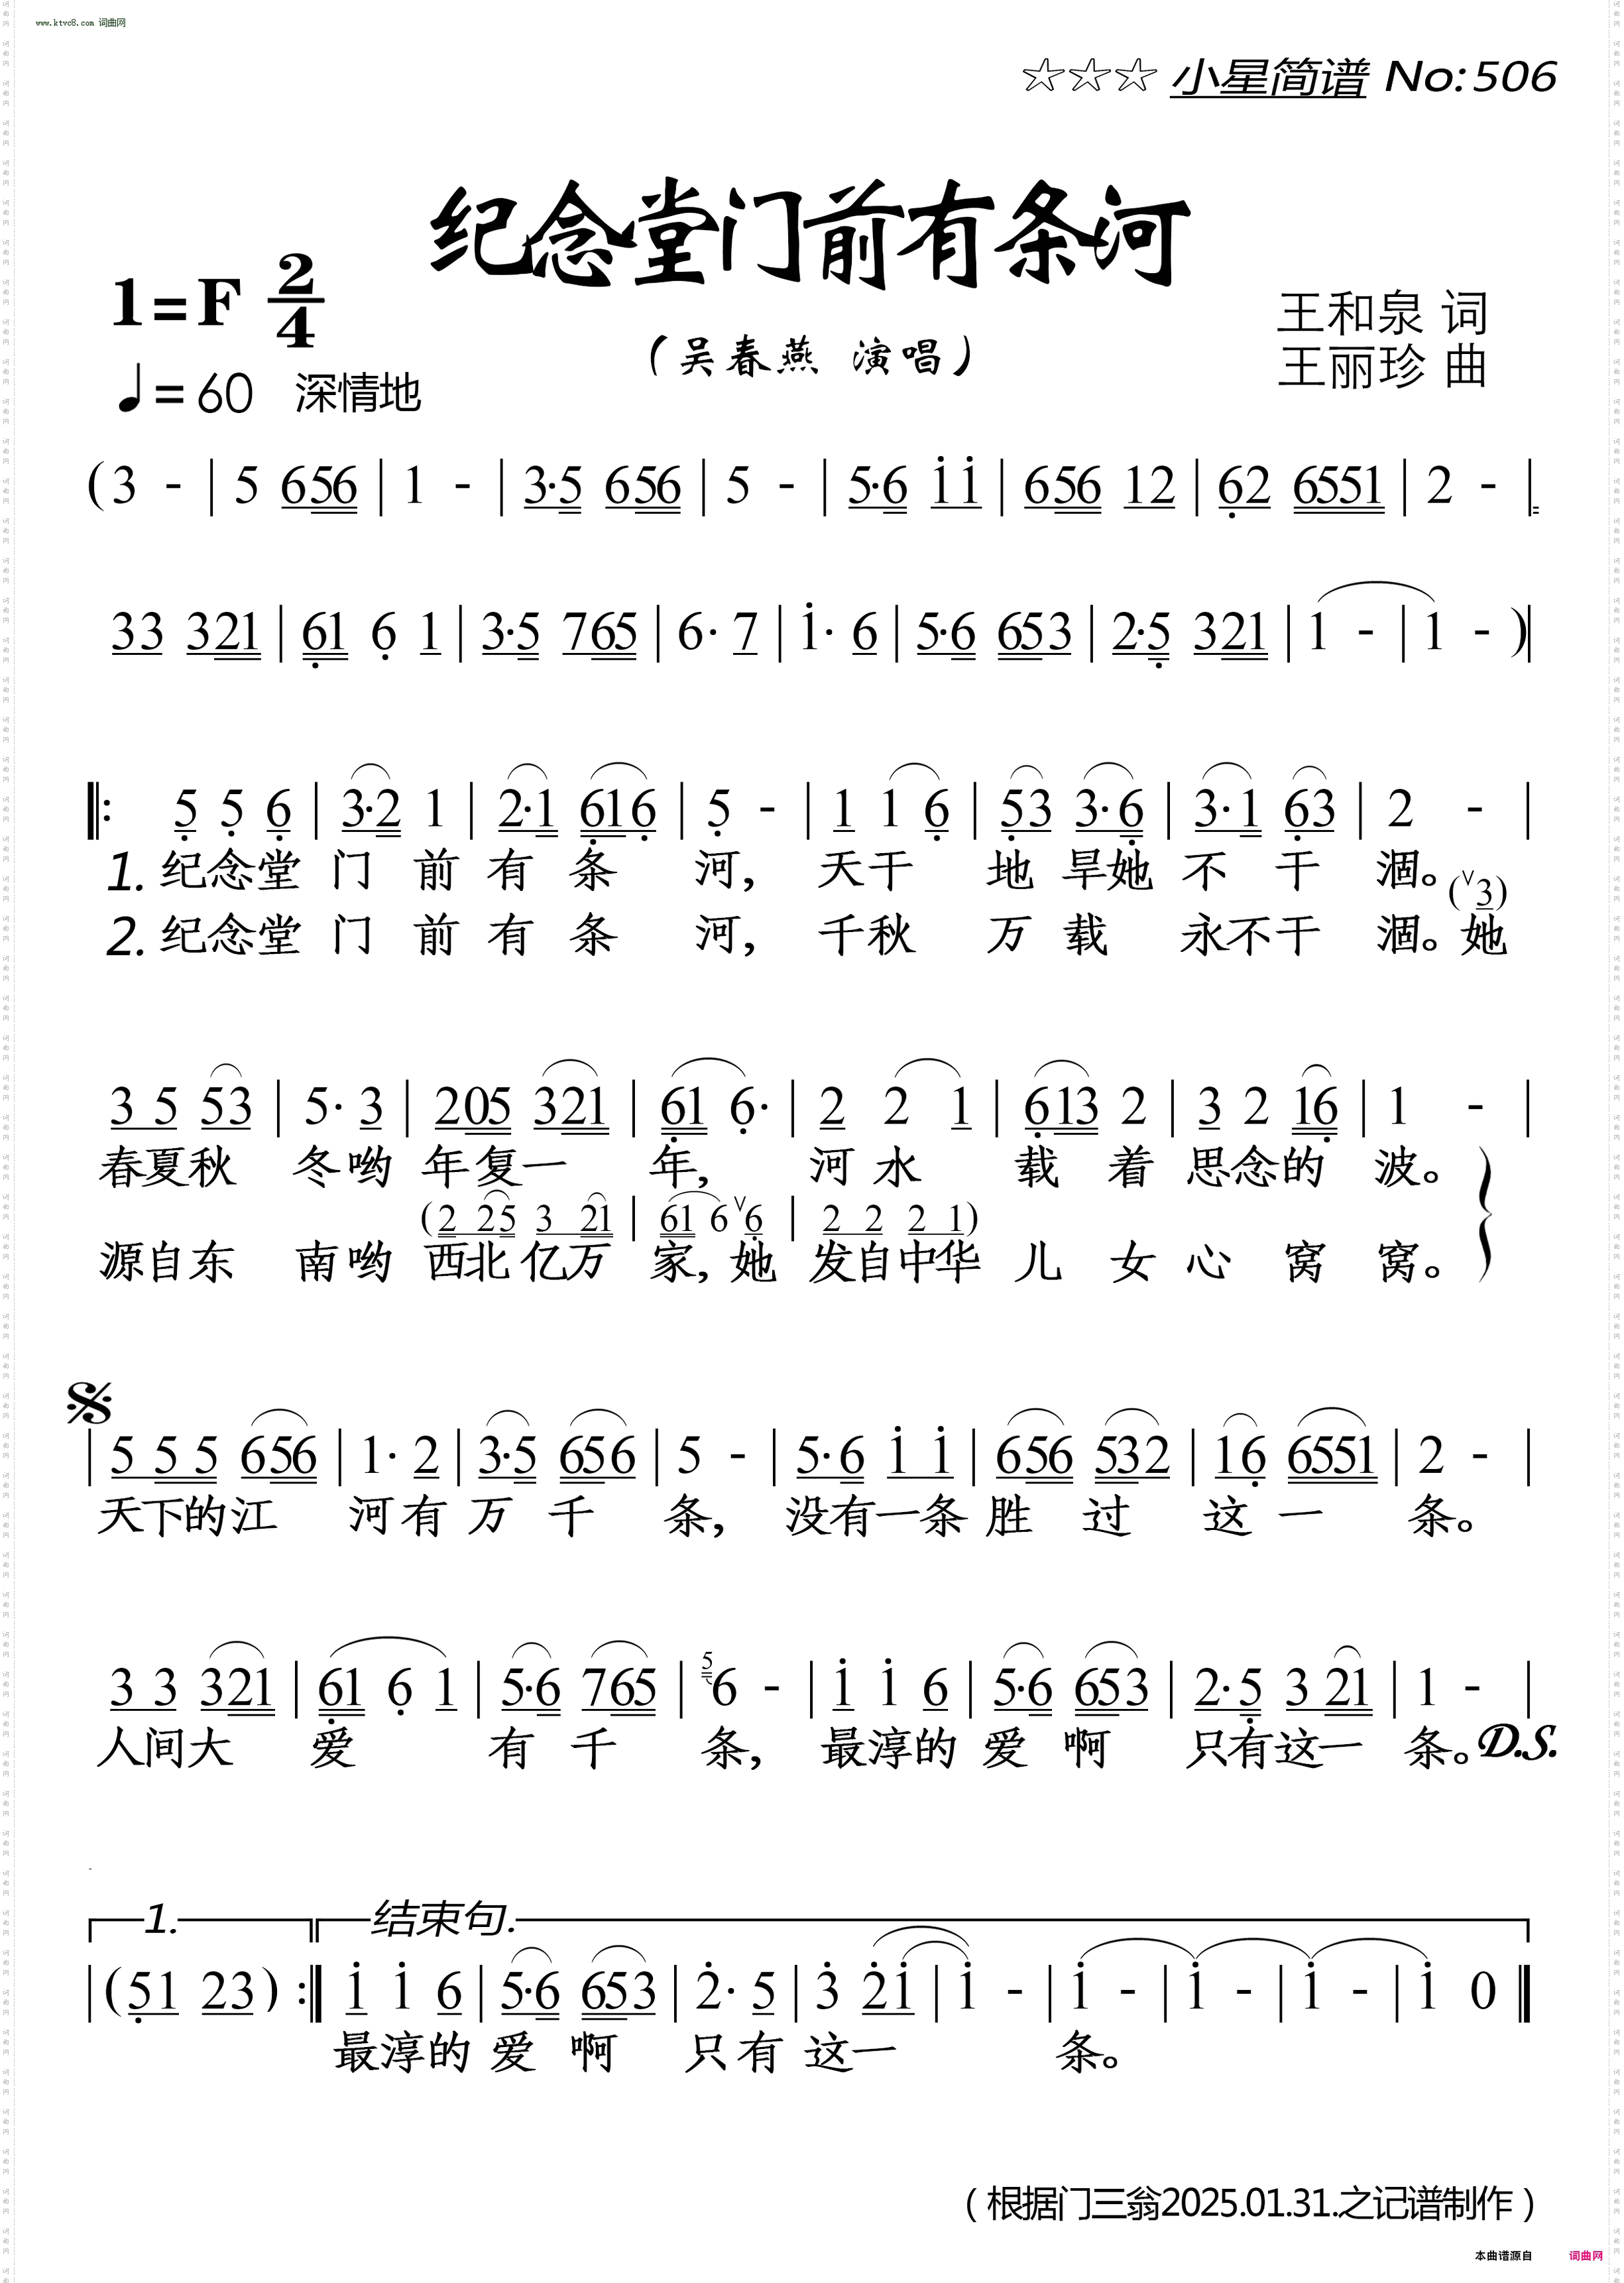 www.ktvc8.com 词曲网
☆☆☆ 小星简谱 No:506
纪念堂门前有条河
1=F 2/4
（吴春燕 演唱）
王和泉 词
王丽珍 曲
♩= 60 深情地
(3 - | 5 656 | 1 - | 3·5 656 | 5 - | 5·6 i i | 656 12 | 6̣2 6551 | 2 - |
33 321 | 6̣1 6̣ 1 | 3·5 765 | 6· 7 | i· 6 | 5·6 653 | 2·5̣ 321 | 1 - | 1 - )|
‖: 5̣ 5̣ 6̣ | 3·2 1 | 2·1 6̣16̣ | 5̣ - | 1 1 6̣ | 5̣3 3·6̣ | 3·1 6̣3 | 2 - |
1. 纪念堂 门 前 有 条 河, 天干 地 旱她 不 干 涸。
(∨3)
2. 纪念堂 门 前 有 条 河, 千秋 万 载 永不干 涸。她
3 5 53 | 5· 3 | 205 321 | 6̣1 6̣· | 2 2 1 | 6̣13 2 | 3 2 16̣ | 1 - |
春夏秋 冬哟 年复一 年, 河水 载 着 思念的 波。
(2 25 3 21 | 61 6 ∨6̣ | 2 2 2 1)
源自东 南哟 西北亿万 家, 她 发自中华 儿 女 心 窝 窝。
| 5 5 5 656 | 1· 2 | 3·5 656 | 5 - | 5·6 i i | 656 532 | 16̣ 6551 | 2 - |
天下的江 河有 万 千 条, 没有一条 胜 过 这 一 条。
3 3 321 | 6̣1 6̣ 1 | 5·6 765 | 5 6 - | i i 6 | 5·6 653 | 2·5̣ 3 21 | 1 - |
人间大 爱 有 千 条, 最淳的 爱 啊 只有这一 条。D.S.
1. 结束句.
| (5̣1 23) :‖ i i 6 | 5·6 653 | 2̇· 5 | 3̇ 2̇i | i - | i - | i - | i - | i 0 ‖
最淳的 爱 啊 只有 这一 条。
（根据门三翁2025.01.31.之记谱制作）
本曲谱源自 词曲网